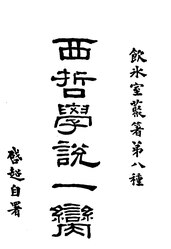 飲氷室叢箸第八種
西哲學說一臠
啓超自署